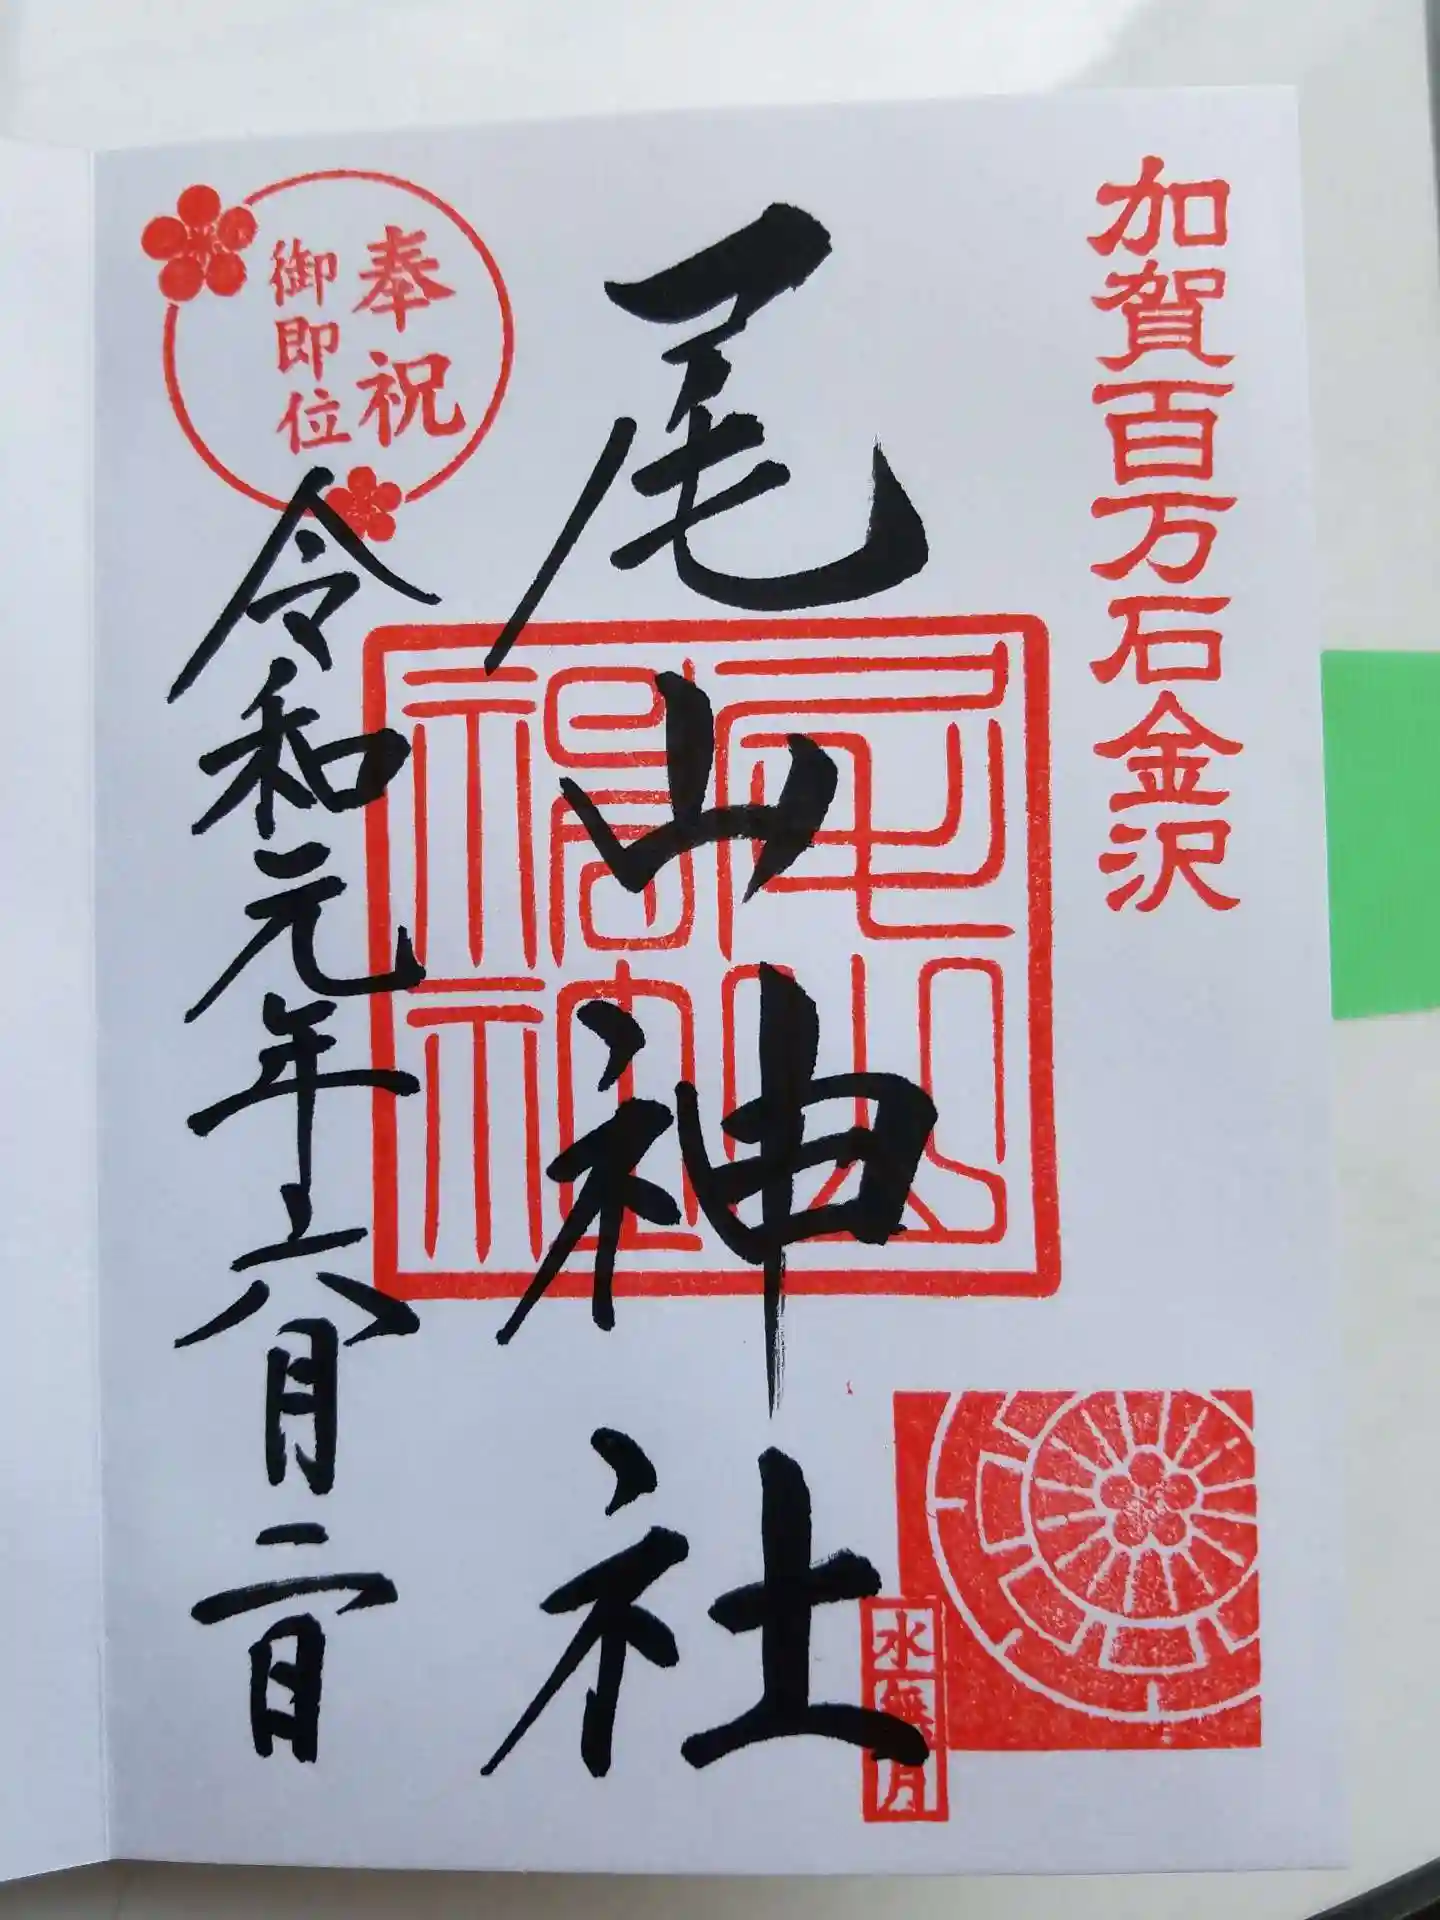 加賀百万石金沢
尾山神社
尾山神社
水無月
奉祝
御即位
令和元年六月二日